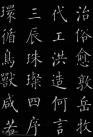 治俗愈敦岳牧
代工洪造何言
三辰珠璨四序
環循鳥獸咸若